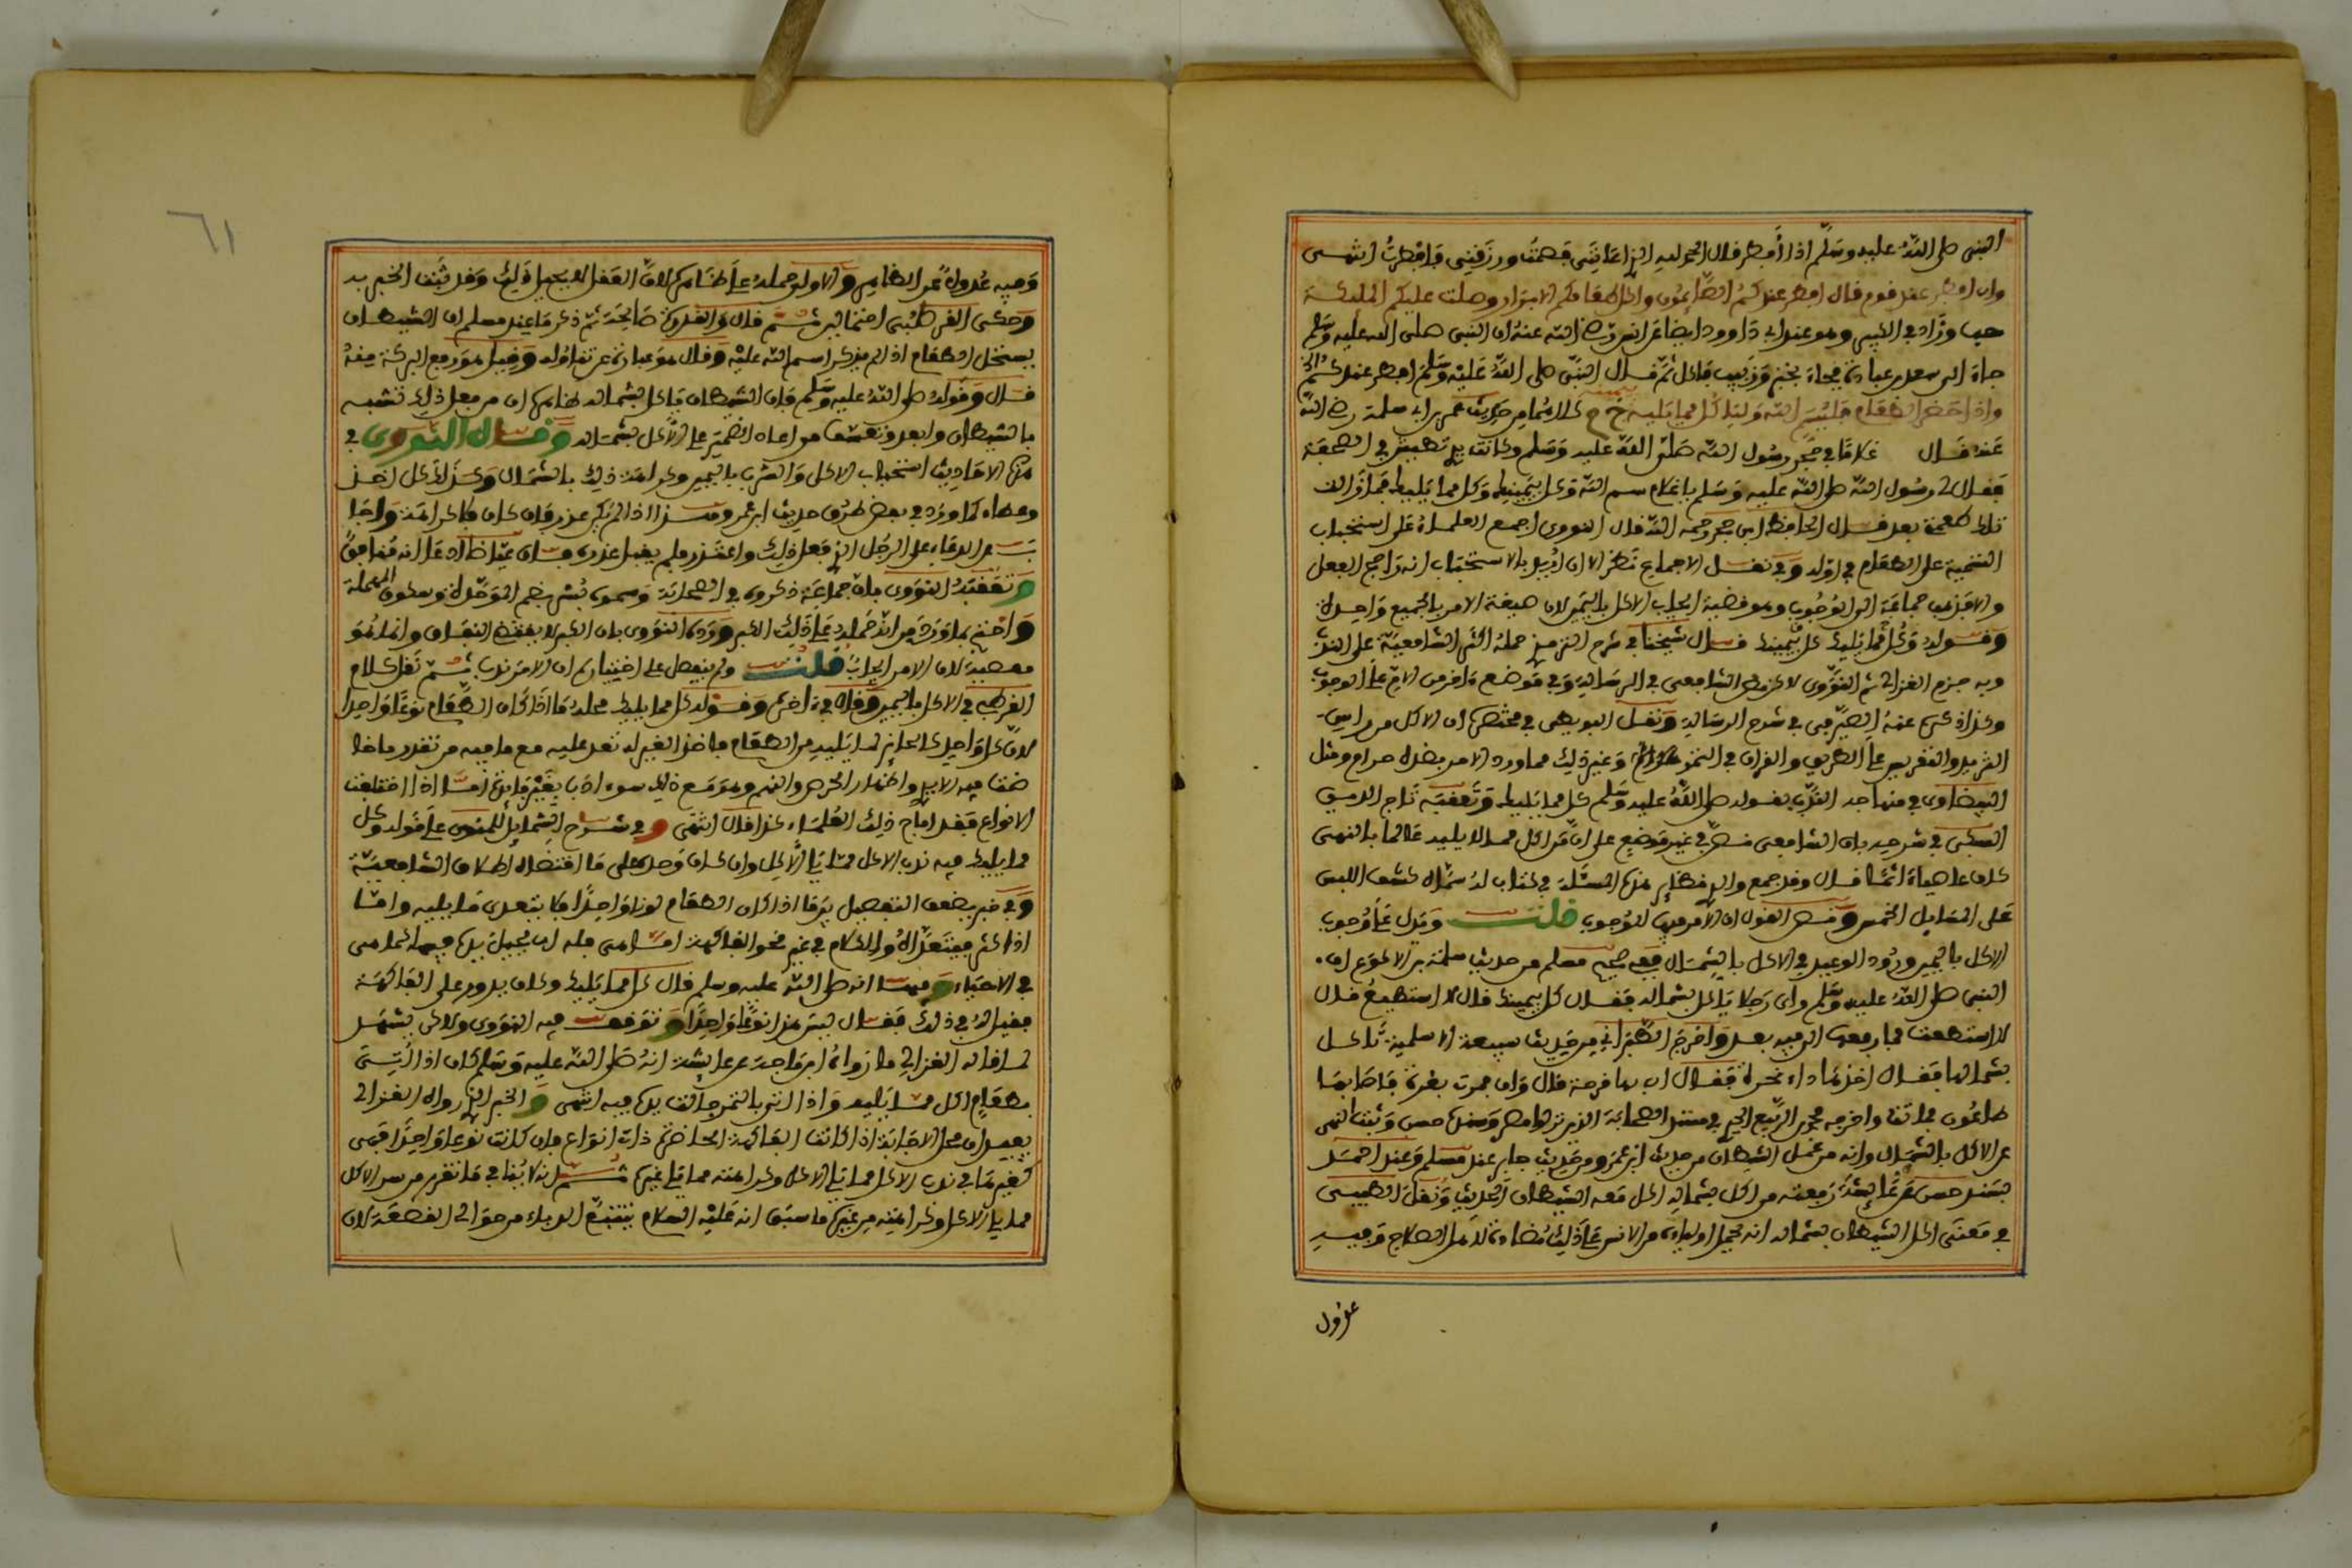 النبي صلى الله عليه وسلم اذا أفطر قال الحمد لله الذي اعانني فصمت ورزقني فافطرت الشمسى
وان افطر عند قوم قال افطر عندكم الصائمون واكل طعامكم الابرار وصلت عليكم الملئكة
حب وزاد في الكبير وهو عند ابي داوود ايضا عن انس رضي الله عنه ان النبي صلى الله عليه وسلم
جاء الى سعد بن عبادة فجاء بخبز وزبيب فاكل ثم قال النبي صلى الله عليه وسلم افطر عندكم الخ
واذا حضر الطعام فليسم الله وليأكل مما يليه بيمينه خ م كلاهما من حديث عمر بن ابي سلمة رضي الله
عنه قال غلاما في حجر رسول الله صلى الله عليه وسلم وكانت يدي تطيش في الصحفة
فقال لي رسول الله صلى الله عليه وسلم يا غلام سم الله وكل بيمينك وكل مما يليك فما زالت
تلك طعمتي بعد قال الحافظ ابن حجر رحمه الله قال النووي اجمع العلماء على استحباب
التسمية على الطعام في اوله وفي نقل الاجماع نظر الا ان اريد بالاستحباب انه راجح الفعل
والا فذهب جماعة الى الوجوب وهو قضية ايجاب الاكل باليمين لان صيغة الامر بالجميع واحدة
وقوله وكل مما يليك كل بيمينك قال شيخنا في شرح الترمذي حمله اكثر الشافعية على الندب
وبه جزم الغزالي ثم النووي لاكن نص الشافعي في الرسالة وفي موضع ءاخر من الام على الوجوب
وكذا ذكره عنه الصيرفي في شرح الرسالة ونقل البويطي في مختصره ان الاكل من راس
الثريد والتعريس على الطريق والقران في التمر وغير ذلك مما ورد الامر بضده حرام ومثل
البيضاوي في منهاجه الندب بقوله صلى الله عليه وسلم كل مما يليك وتعقبه تاج الدين
السبكي في شرحه بان الشافعي نص في غير موضع على ان من اكل مما لا يليه عالما بالنهي
كان عاصيا ءاثما قال وقد جمع والدي نظائر هذه المسئلة في كتاب له سماه كشف اللبس
على المسايل الخمس ونصر القول ان الامر فيها للوجوب قلت ويدل على وجوب
الاكل باليمين ورود الوعيد في الاكل بالشمال ففي صحيح مسلم من حديث سلمة بن الاكوع ان
النبي صلى الله عليه وسلم راى رجلا ياكل بشماله فقال كل بيمينك قال لا استطيع قال
لا استطعت فما رفعها الى فيه بعد واخرج الطبراني من حديث سبيعة الاسلمية تاكل
بشمالها فقال اخذها داء غزة فقال ان بها قرحة قال وان فمرت بغزة فاصابها
طاعون فماتت واخرجه محمد بن الربيع الجيزي في مسند الصحابة الذين نزلوا مصر وسنده حسن وثبت النهي
عن الاكل بالشمال وانه من عمل الشيطان من حديث ابن عمر ومن حديث جابر عند مسلم وعند احمد
بسند حسن عن عائشة رفعته من اكل بشماله اكل معه الشيطان الحديث ونقل الطيبي
في معنى اكل الشيطان بشماله انه يحمل اولياءه من الانس على ذلك مضادة لاهل الصلاح وفيه
عدول
٦١
وفيه عدول عن الظاهر والاولى حمله على ظاهره لان العقل لا يحيل ذلك وقد ثبت الخبر به
وحكى القرطبي احتمالين ثم قال والقدرة صالحة ثم ذكر ما عند مسلم ان الشيطان
يستحل الطعام اذا لم يذكر اسم الله عليه وقال هو عبارة عن تناوله وقيل هو رفع البركة منه
قال وقوله صلى الله عليه وسلم فان الشيطان ياكل بشماله ظاهره ان من فعل ذلك تشبه
بالشيطان وابعد وتعسف من اعاد الضمير على الاكل بشماله وقال النووي في
هذه الاحاديث استحباب الاكل والشرب باليمين وكراهة ذلك بالشمال وكذلك كل اخذ
وعطاء كما ورد في بعض طرق حديث ابن عمر وهذا اذا لم يكن عذر فان كان فلا كراهة واجا
ب عن الدعاء على الرجل الذي فعل ذلك واعتذر فلم يقبل عذره بان عياضا ادعا انه منافق
وتعقبه النووي بان جماعة ذكروه في الصحابة وسموه بسر بضم الموحدة وسكون المهملة
واحتج بما ورد من انه حمله على ذلك الكبر ورده النووي بان الكبر لا يقتضي النفاق وانما هو
معصية لان الامر ايجاب قلت ولم ينفصل على اختياره ان الامر ندب ثم نقل كلام
القرطبي في الاكل باليمين وقال في ءاخره وقوله كل مما يليك محله ما اذا كان الطعام نوعا واحدا
لان كل واحد كالحائز لما يليه من الطعام فاخذ الغير له تعد عليه مع ما فيه من تقذر ماخا
ضت فيه الايدي واظهار الحرص والنهم وهو مع ذلك سوء ادب بغير فايدة اما اذا اختلفت
الانواع فقد اباح ذلك العلماء كذا قال انتهى وفي شرح الشمايل للمنوي على قوله وكل
مما يليك فيه ندب الاكل مما يلي الاكل وان كان وحده على ما اقتضاه اطلاق الشافعية
وفي خبر بضعف التفصيل بين ما اذا كان الطعام لونا واحدا فلا يتعدى ما يليه واما
اذا كثر فيتعداه والكلام في غير نحو الفاكهة اما هي فله ان يجيل يده فيها كما هي
في الاحياء وفيها انه صلى الله عليه وسلم قال كل مما يليك وكان يدور على الفاكهة
فقيل له في ذلك فقال ليس هذا نوعا واحدا وتوقف فيه النووي ولاكن يشهد
لما قاله الغزالي ما رواه ابن ماجه عن عائشة انه صلى الله عليه وسلم كان اذا اتى
بطعام اكل مما يليه واذا اتي بالتمر جالت يده فيه انتهى والخبر الذي رواه الغزالي
يفيد ان محل الاجابة اذا كانت الفاكهة الحاضرة ذات انواع فان كانت نوعا واحدا فهي
كغيرها في ندب الاكل مما يلي الاكل وكراهته مما يلي غيره ثم هذا لا ينافي ما تقرر من سن الاكل
مما يلي الاكل وكراهته من غيره ما سبق انه عليه السلام يتتبع الدباء من حوالي القصعة لان